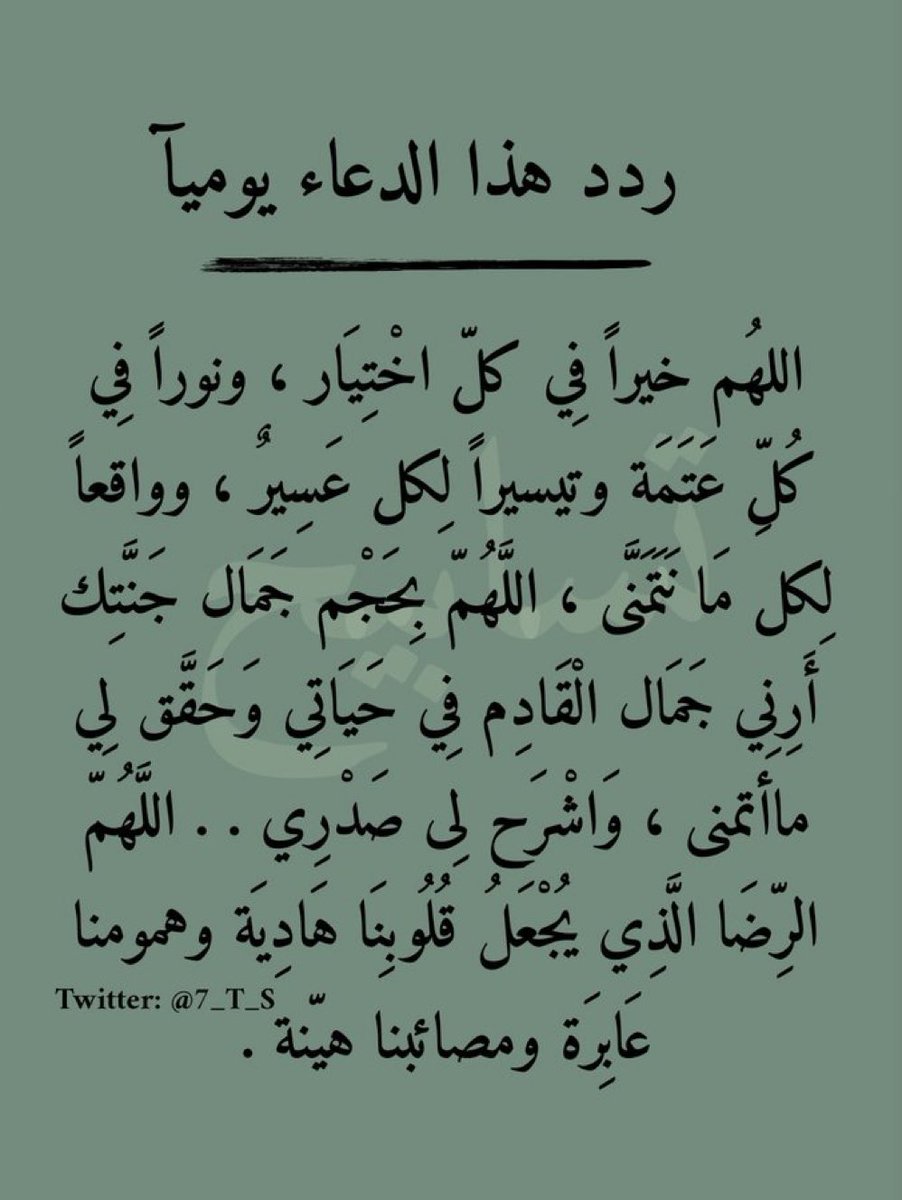 ردد هذا الدعاء يومياً
اللهُم خيراً فِي كلّ اخْتِيَار ، ونوراً فِي
كُلِّ عَتَمَة وتيسيراً لِكل عَسِيرٌ ، وواقعاً
لِكل مَا نَتَمَنَّى ، اللَّهُمّ بِحَجْم جَمَال جَنَّتِك
أَرِنِي جَمَال الْقَادِم فِي حَيَاتِي وَحَقَّق لِي
ماأتمنى ، وَاشْرَح لِى صَدْرِي . . اللَّهُمّ
الرِّضَا الَّذِي يُجْعَلُ قُلُوبِنَا هَادِيَة وهمومنا
عَابِرَة ومصائبنا هيّنة .
Twitter: @7_T_S
تسابيح